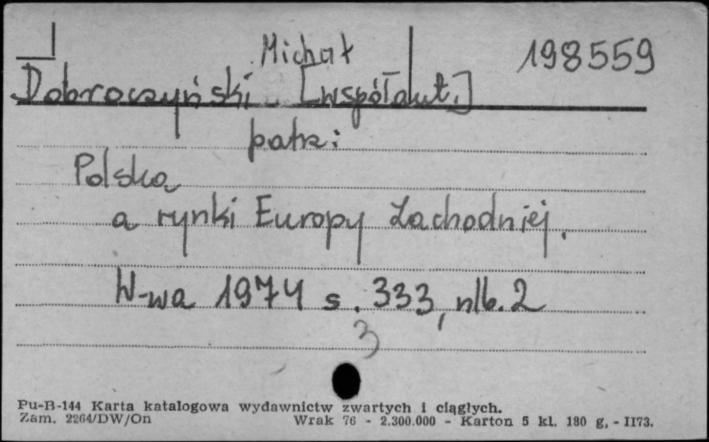 Michał 198559
Dobroczyński [współaut.]
patrz:
Polska
a rynki Europy Zachodniej.
W-wa 1974 s. 333, nlb. 2
3
Pu-B-144 Karta katalogowa wydawnictw zwartych i ciągłych.
Zam. 2264/DW/On Wrak 76 - 2.300.000 - Karton 5 kl. 180 g, - II73.